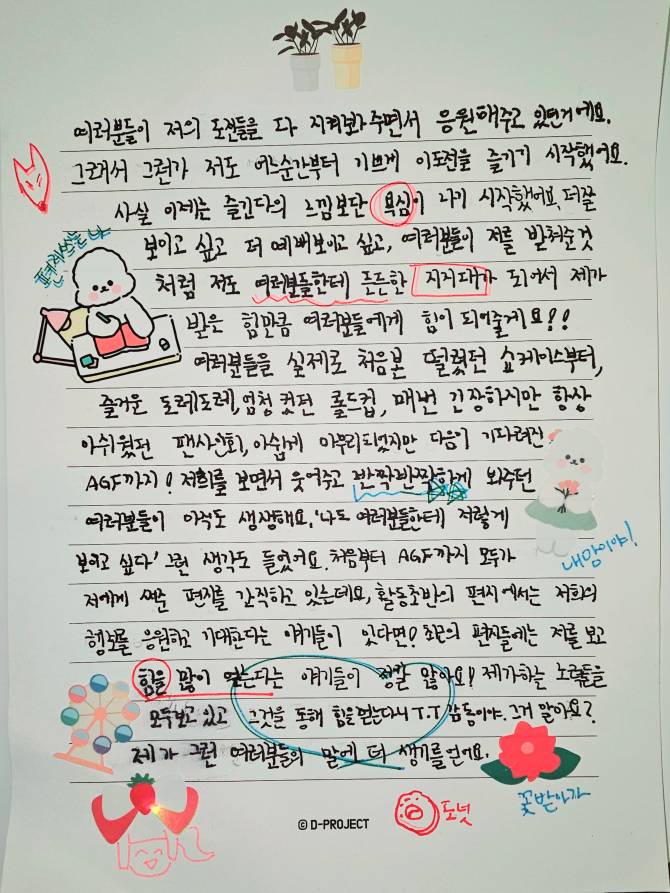 여러분들이 저의 도전들을 다 지켜봐 주면서 응원해주고 있던거예요.
그래서 그런가 저도 어느순간부터 기쁘게 이도전을 즐기기 시작했어요.
사실 이제는 즐긴다의 느낌보단 욕심이 나기 시작했어요. 더 잘
보이고 싶고 더 예뻐보이고 싶고, 여러분들이 저를 받쳐준것
편지쓰는 나
처럼 저도 여러분들한테 든든한 지지대가 되어서 제가
받은 힘만큼 여러분들에게 힘이 되어줄게요!!
여러분들을 실제로 처음본 떨렸던 쇼케이스부터,
즐거운 도레도레, 엄청 컸던 롤드컵, 매번 긴장하지만 항상
아쉬웠던 팬사인회, 아쉽게 마무리되었지만 다음이 기다려진
AGF까지! 저희를 보면서 웃어주고 반짝반짝하게 봐주던
여러분들이 아직도 생생해요. '나도 여러분들한테 저렇게
보이고 싶다' 그런 생각도 들었어요. 처음부터 AGF까지 모두가
내맘이야!
저에게 써준 편지를 간직하고 있는데요, 활동초반의 편지에서는 저희의
행보를 응원하고 기대한다는 얘기들이 있다면! 최근의 편지들에는 저를 보고
힘을 많이 얻는다는 얘기들이 정말 많아요! 제가하는 노력들을
모두보고 있고 그것을 통해 힘을 얻는다니 T.T 감동이야. 그거 알아요?
제가 그런 여러분들의 말에 더 생기를 얻어요.
꽃받아가
도넛
© D-PROJECT